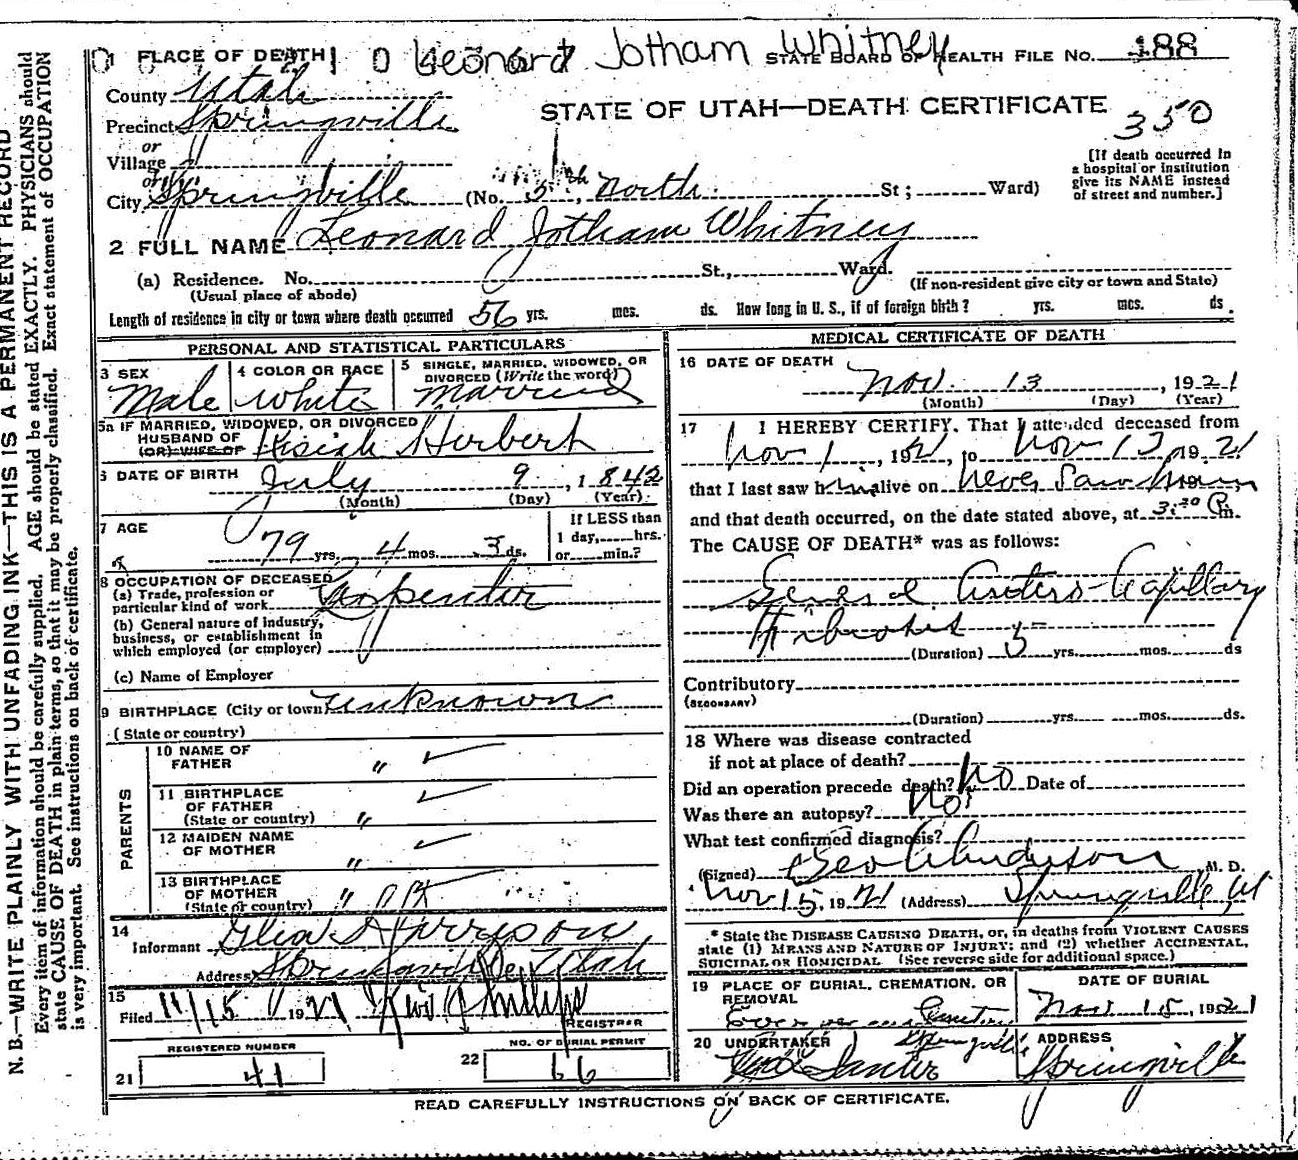 1 PLACE OF DEATH Leonard Jotham Whitney STATE BOARD OF HEALTH FILE NO. 188
County Utah
STATE OF UTAH—DEATH CERTIFICATE
350
Precinct Springville
or
Village
or
City Springville (No. 5th, North St; Ward)
[If death occurred in
a hospital or institution
give its NAME instead
of street and number.]
2 FULL NAME Leonard Jotham Whitney
(a) Residence. No. St., Ward.
(Usual place of abode) (If non-resident give city or town and State)
Length of residence in city or town where death occurred 56 yrs. mos. ds. How long in U. S., if of foreign birth? yrs. mos. ds.
PERSONAL AND STATISTICAL PARTICULARS
3 SEX Male
4 COLOR OR RACE White
5 SINGLE, MARRIED, WIDOWED, OR
DIVORCED (Write the word) Married
5a IF MARRIED, WIDOWED, OR DIVORCED
HUSBAND OF
(OR) WIFE OF Herbert
6 DATE OF BIRTH July 9, 1842
(Month) (Day) (Year)
7 AGE
79 yrs. 4 mos. 3 ds.
If LESS than
1 day, hrs.
or min.?
8 OCCUPATION OF DECEASED
(a) Trade, profession or
particular kind of work Carpenter
(b) General nature of industry,
business, or establishment in
which employed (or employer)
(c) Name of Employer
9 BIRTHPLACE (City or town) Unknown
(State or country)
PARENTS
10 NAME OF
FATHER "
11 BIRTHPLACE
OF FATHER
(State or country) "
12 MAIDEN NAME
OF MOTHER "
13 BIRTHPLACE
OF MOTHER
(State or country) "
14
Informant Harrison
Address Springville, Utah
15
Filed 11/15 1921 Phillips
REGISTRAR
REGISTERED NUMBER
21 41
NO. OF BURIAL PERMIT
22 66
MEDICAL CERTIFICATE OF DEATH
16 DATE OF DEATH
Nov. 13, 1921
(Month) (Day) (Year)
17 I HEREBY CERTIFY, That I attended deceased from
Nov 1, 1921, to Nov 13 1921
that I last saw him alive on never saw him, 19
and that death occurred, on the date stated above, at 3:20 P.m.
The CAUSE OF DEATH* was as follows:
General Arterio-Capillary
Fibrosis
(Duration) 5 yrs. mos. ds
Contributory
(SECONDARY)
(Duration) yrs. mos. ds.
18 Where was disease contracted
if not at place of death?
Did an operation precede death? No Date of
Was there an autopsy? No
What test confirmed diagnosis?
(Signed) Geo Anderson, M. D.
Nov 15, 1921 (Address) Springville, Ut
* State the DISEASE CAUSING DEATH, or, in deaths from VIOLENT CAUSES
state (1) MEANS AND NATURE OF INJURY; and (2) whether ACCIDENTAL,
SUICIDAL OR HOMICIDAL. (See reverse side for additional space.)
19 PLACE OF BURIAL, CREMATION, OR
REMOVAL
Evergreen Cemetery
Springville
DATE OF BURIAL
Nov. 15, 1921
20 UNDERTAKER
ADDRESS
Springville
READ CAREFULLY INSTRUCTIONS ON BACK OF CERTIFICATE.
N. B.—WRITE PLAINLY WITH UNFADING INK—THIS IS A PERMANENT RECORD
Every item of information should be carefully supplied. AGE should be stated EXACTLY. PHYSICIANS should
state CAUSE OF DEATH in plain terms, so that it may be properly classified. Exact statement of OCCUPATION
is very important. See instructions on back of certificate.